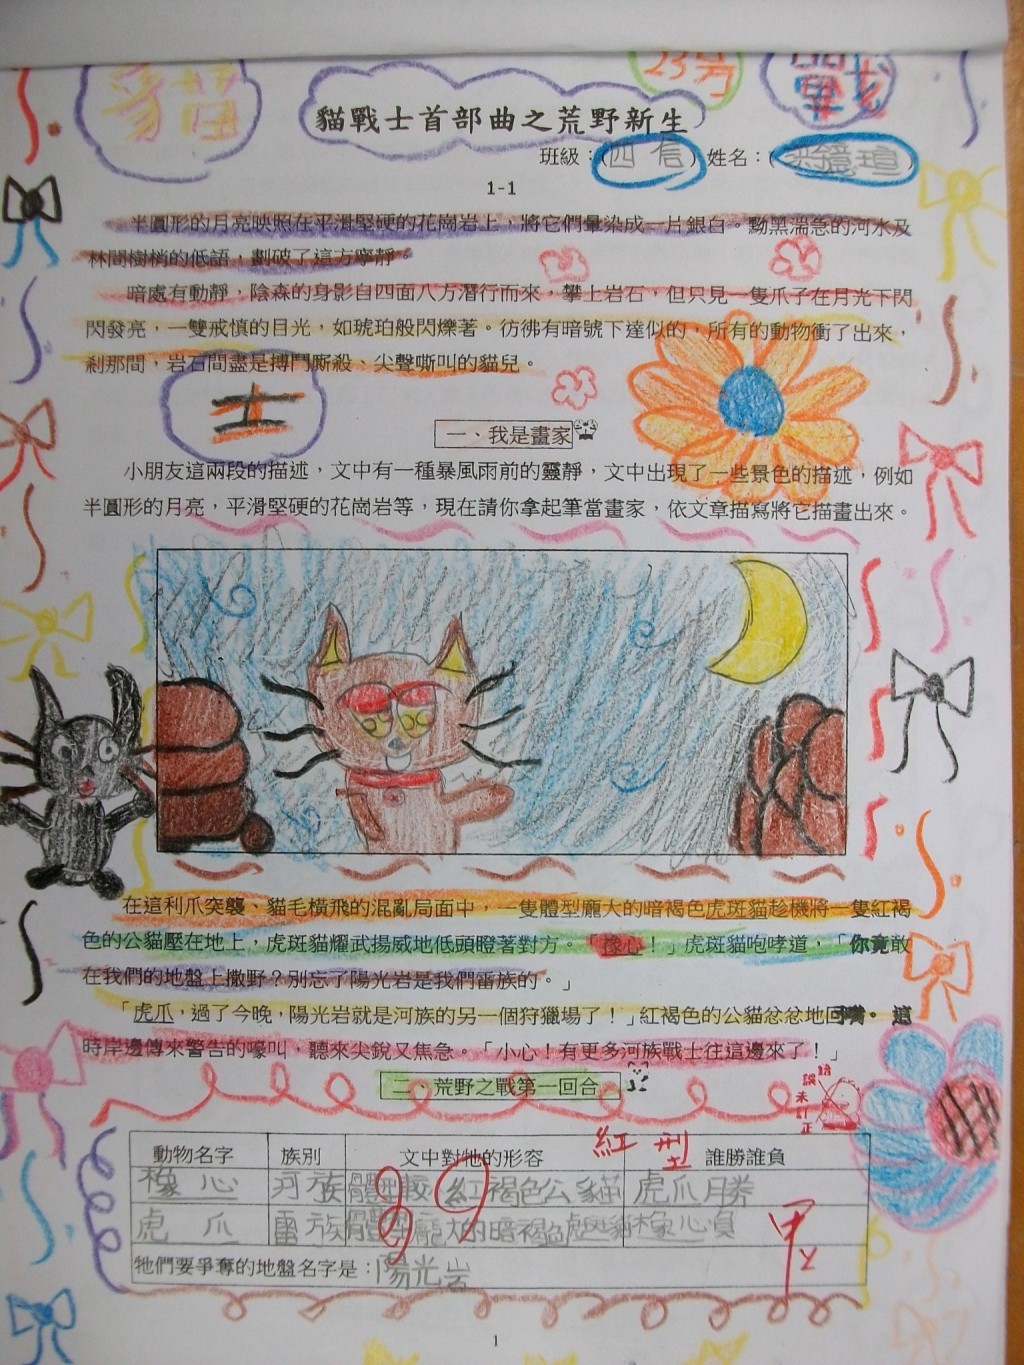 貓
23号
戰
貓戰士首部曲之荒野新生
班級：（四信）姓名：（
1-1
半圓形的月亮映照在平滑堅硬的花崗岩上，將它們暈染成一片銀白。黝黑湍急的河水及
林間樹梢的低語，劃破了這方寧靜。
暗處有動靜，陰森的身影自四面八方潛行而來，攀上岩石，但只見一隻爪子在月光下閃
閃發亮，一雙戒慎的目光，如琥珀般閃爍著。彷彿有暗號下達似的，所有的動物衝了出來，
剎那間，岩石間盡是搏鬥廝殺、尖聲嘶叫的貓兒。
士
一、我是畫家
小朋友這兩段的描述，文中有一種暴風雨前的靈靜，文中出現了一些景色的描述，例如
半圓形的月亮，平滑堅硬的花崗岩等，現在請你拿起筆當畫家，依文章描寫將它描畫出來。
在這利爪突襲、貓毛橫飛的混亂局面中，一隻體型龐大的暗褐色虎斑貓趁機將一隻紅褐
色的公貓壓在地上，虎斑貓耀武揚威地低頭瞪著對方。「橡心！」虎斑貓咆哮道，「你竟敢
在我們的地盤上撒野？別忘了陽光岩是我們雷族的。」
「虎爪，過了今晚，陽光岩就是河族的另一個狩獵場了！」紅褐色的公貓忿忿地回嘴。這
時岸邊傳來警告的嚎叫，聽來尖銳又焦急。「小心！有更多河族戰士往這邊來了！」
二、荒野之戰第一回合
錯誤未訂正
紅 型
動物名字 族別 文中對牠的形容 誰勝誰負
橡心 河族 體型較紅褐色公貓 虎爪勝
虎爪 雷族 體型龐大的暗褐色虎斑貓 橡心負
89
甲
牠們要爭奪的地盤名字是：陽光岩
1